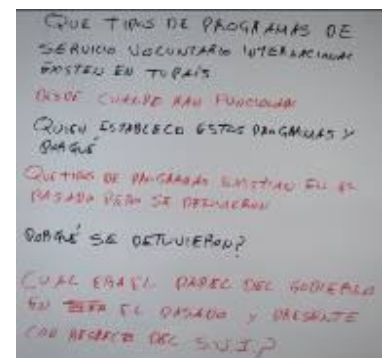 QUE TIPOS DE PROGRAMAS DE
SERVICIO VOLUNTARIO INTERNACIONAL
EXISTEN EN TU PAÍS
DESDE CUANDO HAN FUNCIONADO
QUIEN ESTABLECIO ESTOS PROGRAMAS Y
PORQUÉ
QUE TIPOS DE PROGRAMAS EXISTIAN EN EL
PASADO PERO SE DETUVIERON
PORQUÉ SE DETUVIERON?
CUAL ERA EL PAPEL DEL GOBIERNO
EN EL PASADO Y PRESENTE
CON RESPECTO DEL S.V.I.?